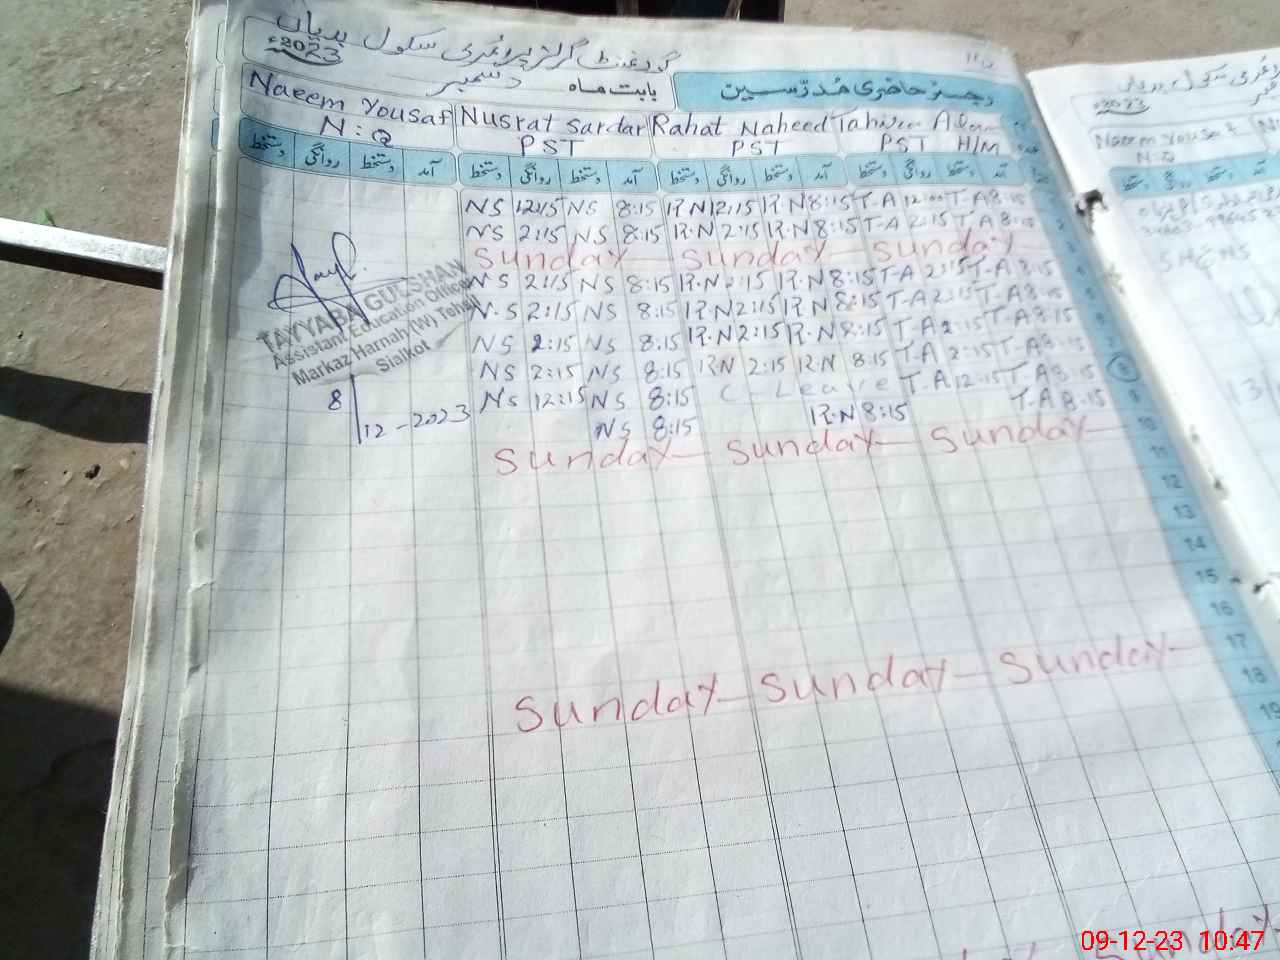 گورنمنٹ گرلز پرائمری سکول بدیاں
2023ء
رجسٹر حاضری مدرّسین بابت ماہ دسمبر
Naeem Yousaf Nusrat Sardar Rahat Naheed
N:Q PST PST PST H/M
دستخط روانگی دستخط آمد دستخط روانگی دستخط آمد دستخط روانگی دستخط آمد دستخط روانگی دستخط آمد
NS 12:15 NS 8:15 R.N 12:15 R.N 8:15 T-A 12:00 T-A 8:15
NS 2:15 NS 8:15 R.N 2:15 R.N 8:15 T-A 2:15 T-A 8:15 2
Sunday Sunday Sunday 3
NS 2:15 NS 8:15 R.N 2:15 R.N 8:15 T-A 2:15 T-A 8:15 4
N.S 2:15 NS 8:15 R.N 2:15 R.N 8:15 T-A 2:15 T-A 8:15
NS 2:15 NS 8:15 R.N 2:15 R.N 8:15 T-A 2:15 T-A 8:15 6
NS 2:15 NS 8:15 R.N 2:15 R.N 8:15 T-A 2:15 T-A 8:15 7
NS 12:15 NS 8:15 C-Leave T-A 12:15 T-A 8:15 8
NS 8:15 R.N 8:15 T-A 8:15 9
Sunday Sunday Sunday 10
11
12
13
14
15
16
Sunday Sunday Sunday 17
18
19
TAYYABA GULSHAN
Assistant Education Officer
Markaz Harnah (W) Tehsil
Sialkot
8/12-2023
2023
Naeem Yousaf
N:Q
دستخط روانگی دستخط آمد
Sunday
09-12-23 10:47